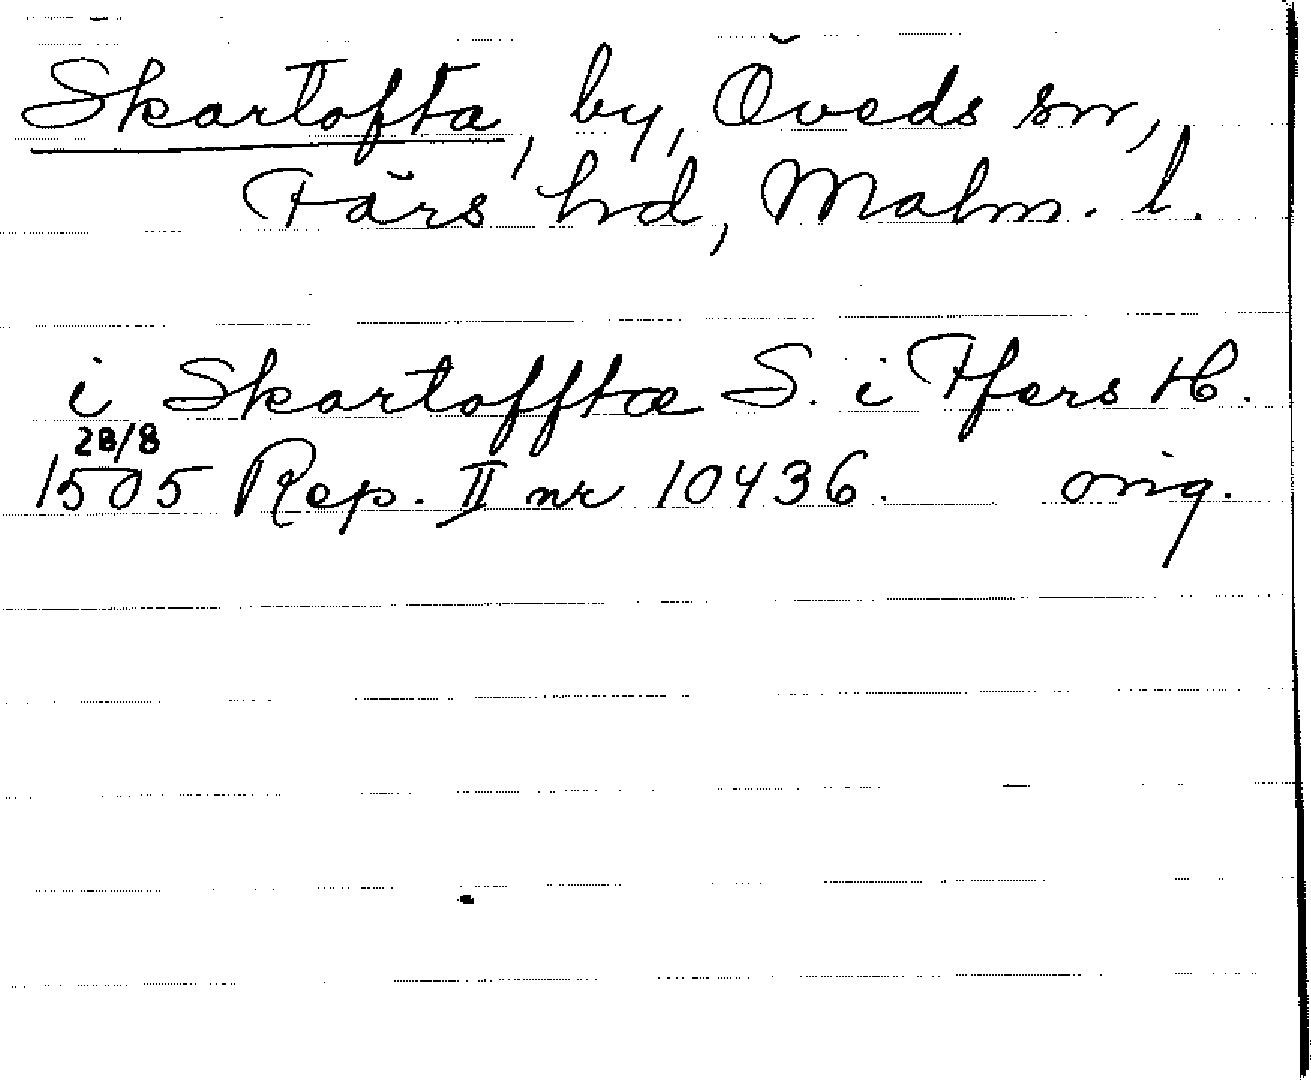 Skartofta, by, Öveds sn,
Färs hd, Malm. l.
i Skartofftæ S. i Ffers H.
28/8
1505 Rep. II nr 10436. orig.